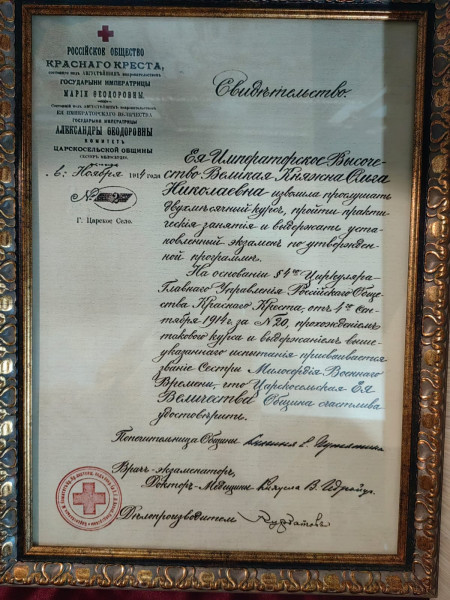 РОССІЙСКОЕ ОБЩЕСТВО
КРАСНАГО КРЕСТА,
состоящее подъ АВГУСТѢЙШИМЪ покровительствомъ
ГОСУДАРЫНИ ИМПЕРАТРИЦЫ
МАРІИ ѲЕОДОРОВНЫ.
Состоящій подъ АВГУСТѢЙШИМЪ покровительствомъ
ЕЯ ИМПЕРАТОРСКАГО ВЕЛИЧЕСТВА
ГОСУДАРЫНИ ИМПЕРАТРИЦЫ
АЛЕКСАНДРЫ ѲЕОДОРОВНЫ
КОМИТЕТЪ
ЦАРСКОСЕЛЬСКОЙ ОБЩИНЫ
СЕСТЕРЪ МИЛОСЕРДІЯ.
6 Ноября 1914 года
№ 2
Г. Царское Село.
Свидѣтельство.
Ея Императорское Высоче-
ство Великая Княжна Ольга
Николаевна изволила прослушать
двухмѣсячный курсъ, пройти практи-
ческія занятія и выдержать уста-
новленный экзаменъ по утвержден-
ной программѣ.
На основаніи § 4го Циркуляра
Главнаго Управленія Россійскаго Обще-
ства Краснаго Креста, отъ 4го Сен-
тября 1914 г. за № 20, прохожденіемъ
таковаго курса и выдержаніемъ выше-
указаннаго испытанія присваивается
званіе Сестры Милосердія Военнаго
Времени, что Царскосельская Ея
Величества Община счастлива
удостовѣрить.
Попечительница Общины
Врачъ-экзаменаторъ,
Докторъ-Медицины Княжна В. Гедройцъ
Дѣлопроизводитель